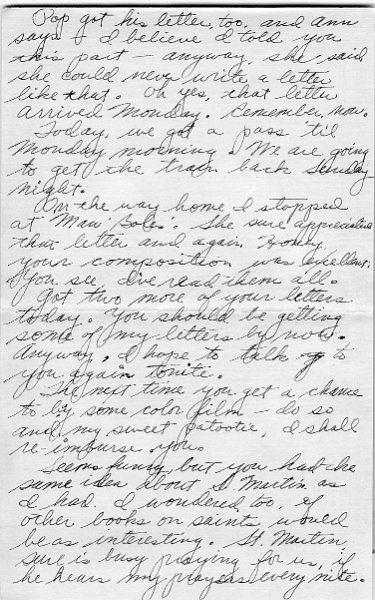 Pop got his letter, too, and Ann
says - I believe I told you
this part - anyway, she said
she could never write a letter
like that. Oh yes, that letter
arrived Monday. Remember, now.
Today, we got a pass 'til
Monday morning. We are going
to get the train back Sunday
night.
On the way home I stopped
at "Maw" . She sure appreciated
that letter and again Honey,
your composition was excellent;
You see, I've read them all.
Got two more of your letters
today. You should be getting
some of my letters by now.
Anyway, I hope to talk to
you again tonite.
The next time you get a chance
to by some color film - do so
and, my sweet patootie, I shall
re-imburse you.
Seems funny but you had the
same idea about St Martin as
I had. I wondered, too, if
other books on saints would
be as interesting. St. Martin
sure is busy praying for us, if
he hears my prayers every nite.